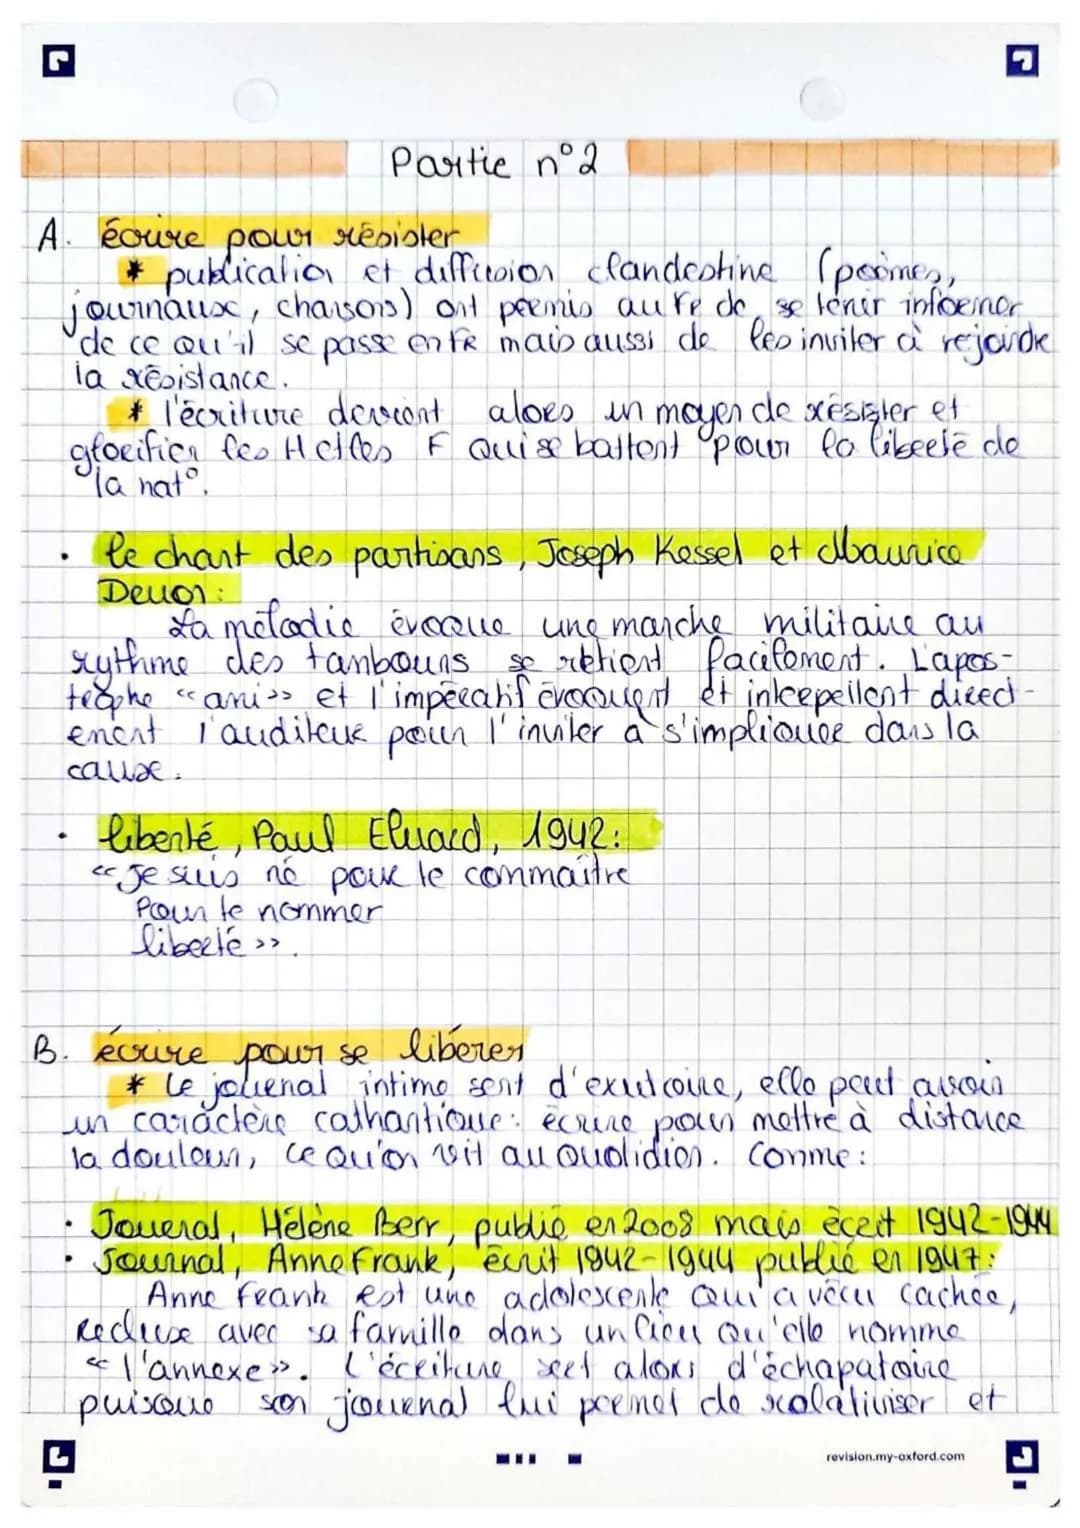 Partie n°2
A. écrire pour résister
* publication et diffusion clandestine (poèmes,
journaux, chansons) ont permis au re de se tenir informer
de ce qu'il se passe en FR mais aussi de les inviter à rejoindre
la résistance.
* l'écriture devient alors un moyen de résister et
glorifier les H et les F qui se battent pour la liberté de
la nat°.
• le chant des partisans, Joseph Kessel et Maurice
Deuon:
La mélodie évoque une marche militaire au
rythme des tambours se retient facilement. L'apos-
trophe «ami» et l'impératif évoquent et interpellent direct-
ement l'auditeur pour l'inviter à s'impliquer dans la
cause.
• liberté, Paul Eluard, 1942:
«Je suis né pour te connaître
Pour te nommer
liberté».
B. écrire pour se libérer
* Le journal intime sert d'exutoire, elle peut avoir
un caractère cathartique: écrire pour mettre à distance
la douleur, ce qu'on vit au quotidien. Comme:
• Journal, Hélène Berr, publié en 2008 mais écrit 1942-1944
• Journal, Anne Frank, écrit 1942-1944 publié en 1947:
Anne Frank est une adolescente qui a vécu cachée,
recluse avec sa famille dans un lieu qu'elle nomme
«l'annexe». L'écriture sert alors d'échapatoire
puisque son journal lui permet de relativiser et
revision.my-oxford.com